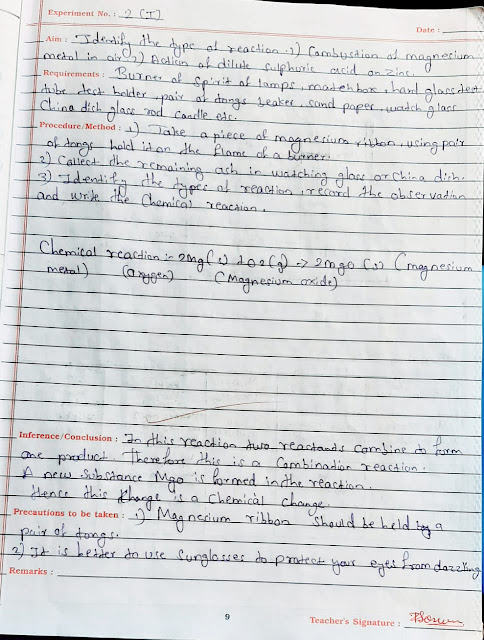 Experiment No. : 2 (I)
Date :
Aim : Identify the type of reaction 1) Combustion of magnesium
metal in air 2) Action of dilute sulphuric acid on zinc.
Requirements : Burner of spirit of lamps, matchbox, hard glass test
tube test holder, pair of tongs beaker, sand paper, watch glass
China dish glass rod candle etc.
Procedure/Method : 1) Take a piece of magnesium ribbon, using pair
of tongs hold it on the flame of a burner.
2) Collect the remaining ash in watching glass or china dish.
3) Identify the types of reaction, record the observation
and write the Chemical reaction.
Chemical reaction :- 2mg(s) + O2(g) -> 2mgo (s) (magnesium
metal) (oxygen) (Magnesium oxide)
Inference/Conclusion : In this reaction two reactands combine to form
one product. Therefore this is a Combination reaction.
A new substance Mgo is formed in the reaction.
Hence this change is a Chemical change
Precautions to be taken : 1) Magnesium ribbon should be held by a
pair of tongs.
2) It is better to use Sunglasses to protect your eyes from dazzling
Remarks :
9
Teacher's Signature :